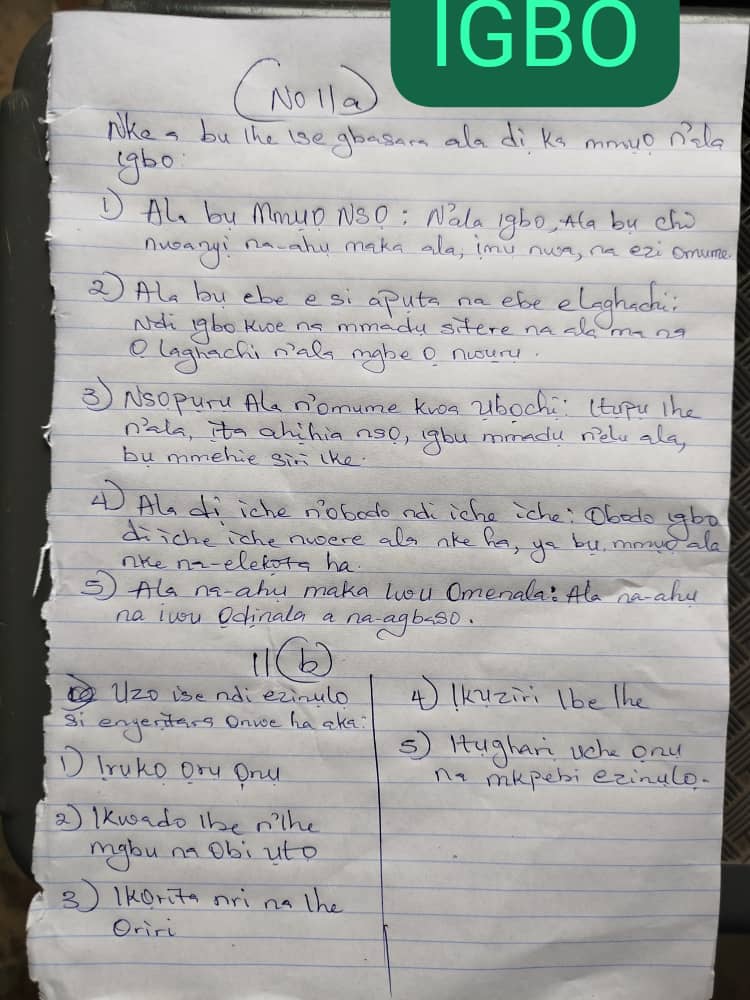 IGBO
No 11a
Nke a bụ ihe ise gbasara ala dị ka mmụọ n'ala
igbo:
1) Ala bụ Mmụọ NSO: N'ala igbo, Ala bụ chi
nwanyị na-ahụ maka ala, ịmụ nwa, na ezi omume.
2) Ala bụ ebe e si apụta na ebe e laghachi:
Ndi igbo kwe na mmadụ sitere na ala ma na
O laghachi n'ala mgbe Ọ nwụrụ.
3) Nsopụrụ Ala n'omume kwa ụbọchị: Itupu ihe
n'ala, ịta ahịhịa nsọ, igbu mmadụ n'elu ala,
bụ mmehie siri ike.
4) Ala dị iche n'obodo ndị iche iche: Obodo igbo
dị iche iche nwere ala nke ha, ya bụ, mmụọ ala
nke na-elekọta ha.
5) Ala na-ahụ maka Iwu Omenala: Ala na-ahụ
na iwu Ọdịnala a na-agbaso.
11(b)
Uzo ise ndi ezinụlọ
si enyerịtara Onwe ha aka:
1) Irukọ Ọrụ Ọnụ
2) Ikwado Ibe n'Ihe
mgbu na Obi ụtọ
3) Ikọrịta nri na Ihe
Oriri
4) Ikuziri Ibe Ihe
5) Itụgharị uche ọnụ
na mkpebi ezinụlọ.